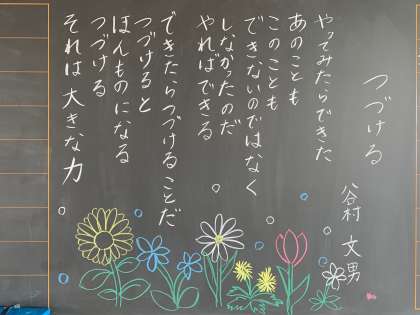 つづける
谷村 文男
やってみたらできた
あのことも
このことも
できないのではなく
しなかったのだ
やればできる
できたらつづけることだ
つづけると
ほんものになる
つづける
それは 大きな力